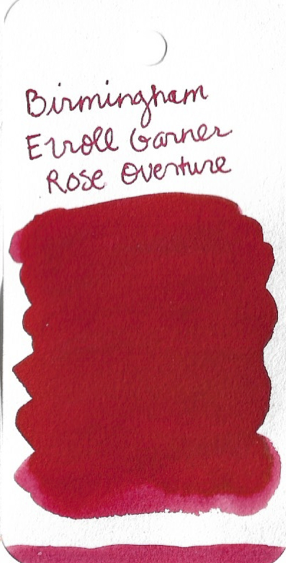 Birmingham
Erroll Garner
Rose Overture